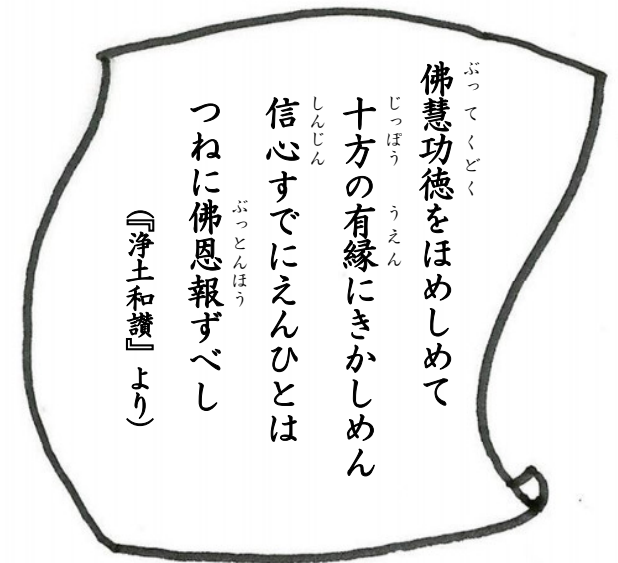 佛慧功徳をほめしめて
ぶってくどく
十方の有縁にきかしめん
じっぽう うえん
信心すでにえんひとは
しんじん
つねに佛恩報ずべし
ぶっとんほう
(『浄土和讃』より)